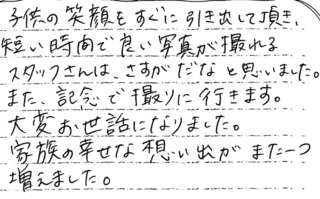 子供の笑顔をすぐに引き出して頂き、
短い時間で良い写真が撮れる
スタッフさんは、さすがだなと思いました。
また、記念で撮りに行きます。
大変お世話になりました。
家族の幸せな想い出がまた一つ
増えました。